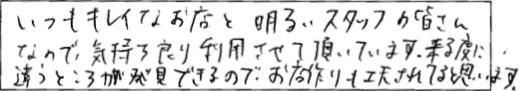 いつもキレイなお店と明るいスタッフの皆さん
なので、気持ち良り利用させて頂いています。来る度に
違うところが発見できるので、お店作りも工夫されてると思います。